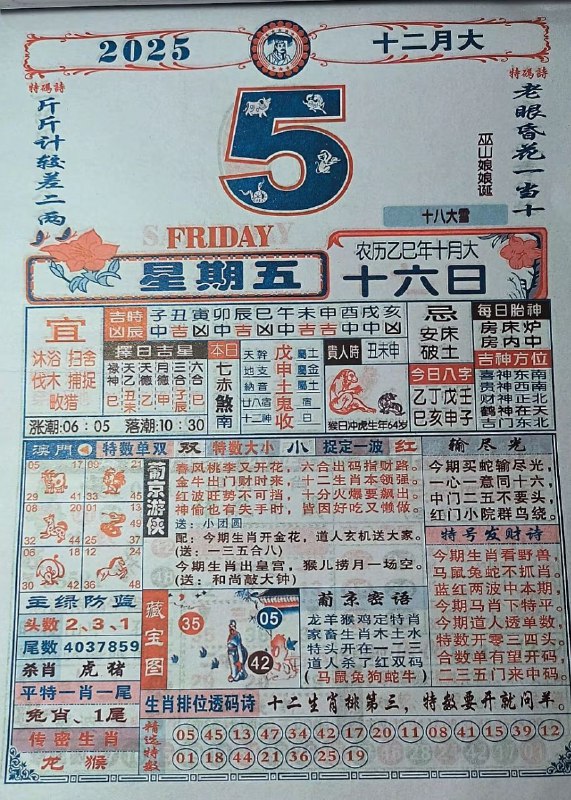 2025
十二月大
特碼詩
斤斤计较差二两
5
特碼詩
老眼昏花一当十
巫山娘娘诞
十八大雪
FRIDAY
星期五
农历乙巳年十月大
十六日
宜
沐浴 扫舍
伐木 捕捉
畋猎
涨潮:06:05 落潮:10:30
吉時
凶辰
子丑寅卯辰巳午未申酉戌亥
擇日吉星
禄神 天乙 天德 月德 三合 六合
本日
七赤煞南
天幹 地支 納音 廿八宿 十二神
戊申土鬼收
貴人時
丑未申
猴日冲虎生年64岁
忌
安床
破土
今日八字
乙丁戊壬
巳亥申子
每日胎神
房床炉
房内中
吉神方位
喜神东南
贵神西南
财神正北
鹤神在天
吉门东北
澳門
特數单双 双 特數大小 小 捉定一波 红
05 17
29 41
09 21
33 45
08 20
32 44
01 13
06 18
30 42
12 24
36 48
主绿防蓝
头数 2、3、1
尾数 4037859
杀肖 虎 猪
平特一肖一尾
兔肖、1尾
传密生肖
龙 猴
葡京游侠
春风桃李又开花，六合出码指财路。
金牛出门财时来，十二生肖本领强。
红波旺势不可挡，十分火爆要飙出。
神偷也有失手时，皆因好吃又懒做。
送：小团圆
配：今期生肖开金花，道人玄机送大家。
(送：一三五合八)
今期生肖出皇宫，猴儿捞月一场空。
(送：和尚敲大钟)
藏宝图
35
05
42
葡京密语
龙羊猴鸡定特肖
家畜生肖木土水
特头开在一二三
道人杀了红双码
(马鼠兔狗蛇牛)
输尽光
今期买蛇输尽光，
一心一意同十六，
中门二五不要头，
红门小院群鸟绕。
特号发财诗
今期生肖看野兽，
马鼠兔蛇不抓肖。
蓝红两波中本期，
今期马肖下特平。
今期道人透单数，
特数开零三四头。
合数单有望开码，
二三五尾门来中码。
生肖排位透码诗
十二生肖排第三，特數要开就问羊。
精选特数
05 45 13 47 34 42 17 20 11 08 41 15 39 12
01 18 44 21 36 25 19